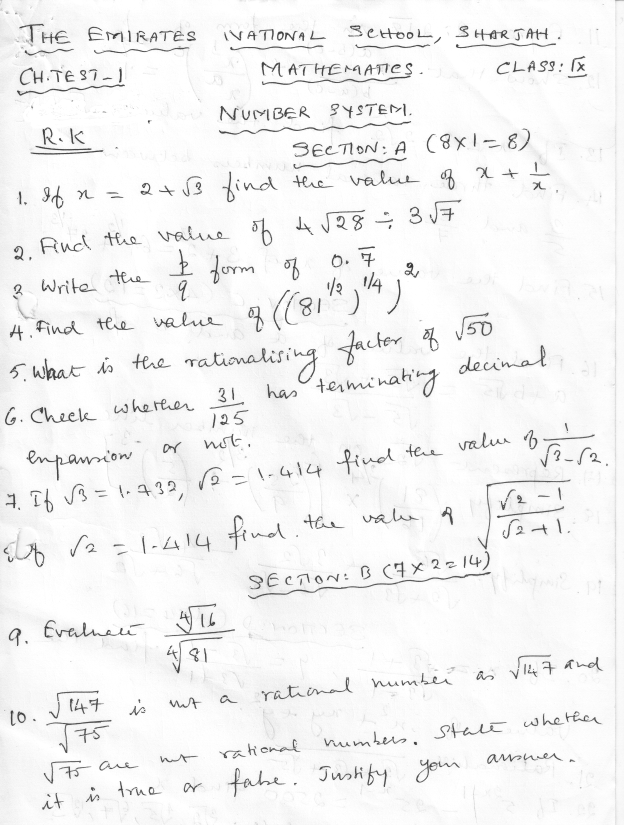 THE EMIRATES NATIONAL SCHOOL, SHARJAH.
CH.TEST-1 MATHEMATICS. CLASS: IX
NUMBER SYSTEM.
R.K
SECTION: A (8x1=8)
1. If x = 2+√3 find the value of x + 1/x.
2. Find the value of 4√28 ÷ 3√7
3. Write the p/q form of 0.7̅
4. Find the value of ((81^1/2)^1/4)^2
5. What is the rationalising factor of √50
6. Check whether 31/125 has terminating decimal
expansion or not.
7. If √3 = 1.732, √2 = 1.414 find the value of 1/(√3-√2).
If √2 = 1.414 find the value of √((√2-1)/(√2+1)).
SECTION: B (7x2=14)
9. Evaluate ∜16/∜81
10. √147/√75 is not a rational number as √147 and
√75 are not rational numbers. State whether
it is true or false. Justify your answer.